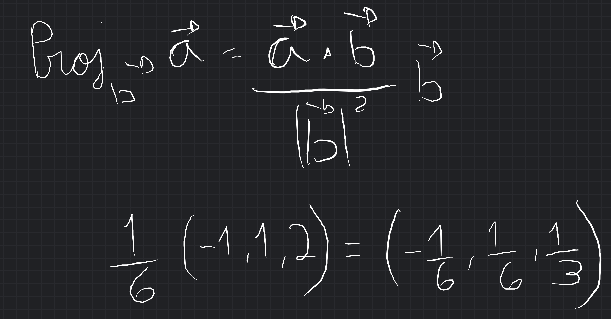 Proj_{\vec{b}} \vec{a} = \frac{\vec{a} \cdot \vec{b}}{|\vec{b}|^2} \vec{b}
\frac{1}{6} (-1, 1, 2) = (-\frac{1}{6}, \frac{1}{6}, \frac{1}{3})